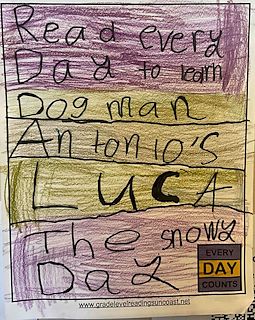 Read every
Day to learn
Dog man
Antonio's
LUCA
The snowy
Day
EVERY
DAY
COUNTS
www.gradelevelreadingsuncoast.net